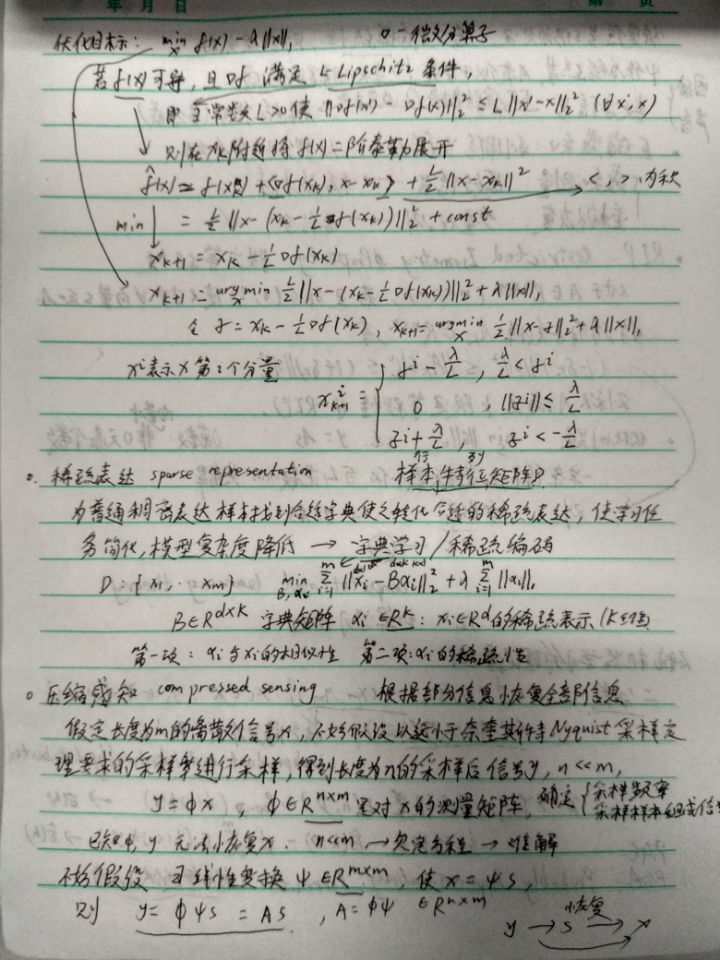 年 月 日 第 页
优化目标: min_x f(x) - λ||x||₁ ▽-微分算子
若 f(x) 可导, 且 ▽f 满足 L-Lipschitz 条件,
即 ∃常数 L>0 使 ||▽f(x') ▽f(x)||₂² ≤ L||x'-x||₂² (∀x', x)
则在 xₖ 附近将 f(x) 二阶泰勒展开
f̂(x) ≃ f(xₖ) + <▽f(xₖ), x-xₖ> + L/2 ||x-xₖ||² → < , > 内积
min = L/2 ||x-(xₖ-1/L ▽f(xₖ))||₂² + const
xₖ₊₁ = xₖ - 1/L ▽f(xₖ)
xₖ₊₁ = argmin_x L/2 ||x-(xₖ-1/L ▽f(xₖ))||₂² + λ||x||₁
令 z = xₖ - 1/L ▽f(xₖ), xₖ₊₁ = argmin_x L/2 ||x-z||₂² + λ||x||₁
xⁱ表示x第i个分量 zⁱ - λ/L , λ/L < zⁱ
xⁱₖ₊₁ = { 0 , ||zⁱ|| ≤ λ/L
zⁱ + λ/L , zⁱ < -λ/L
行 列
稀疏表达 sparse representation 样本,特征矩阵D
为普通稠密表达样本找到合适字典使之转化合适的稀疏表达, 使学习任
务简化, 模型复杂度降低 → 字典学习/稀疏编码
D: {x₁, ·· xₘ} min_{B,αᵢ} Σᵢ₌₁ᵐ ||xᵢ - Bαᵢ||₂² + λ Σᵢ₌₁ᵐ ||αᵢ||₁
B∈R^{d×k} 字典矩阵 αᵢ∈Rᵏ: xᵢ∈R^d的稀疏表示 (k维)
第一项: αᵢ与xᵢ的相似性 第二项: αᵢ的稀疏性
压缩感知 compressed sensing 根据部分信息恢复全部信息
假定长度为m的离散信号x, 不妨假设以远小于奈奎斯特Nyquist采样定
理要求的采样率进行采样, 得到长度为n的采样后信号y, n<<m,
y = φx , φ∈R^{n×m} 是对x的测量矩阵, 确定 { 采样频率
采样样本组成信号
已知φ, y 无法恢复x. n<<m → 欠定方程 → 难解
不妨假设 ∃ 线性变换 ψ∈R^{m×m}, 使 x = ψs,
则 y = φψs = As , A = φψ ∈R^{n×m}
恢复
y → s → x